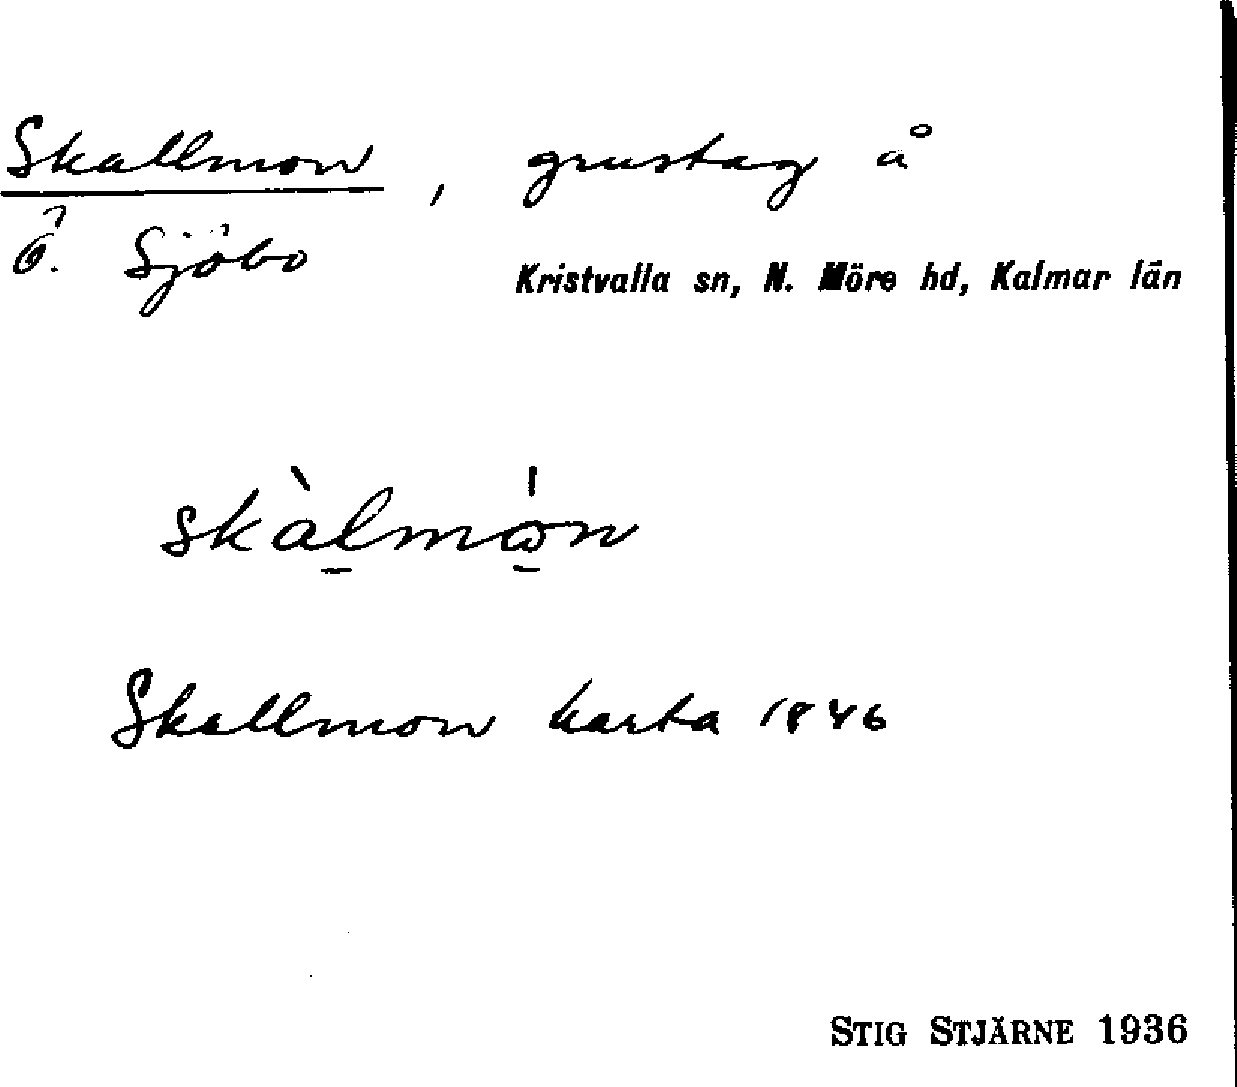 Skallmon, grustag å
Ö. Sjöbo
Kristvalla sn, N. Möre hd, Kalmar län
skàlmɷ́n
Skallmon karta 1846
STIG STJÄRNE 1936